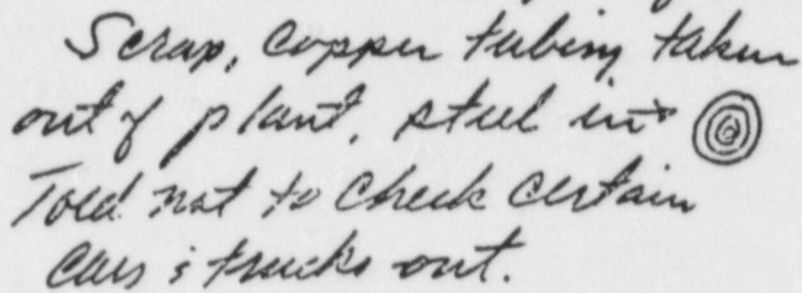 Scrap, Copper tubing taken
out of plant, steel in
Told not to Check Certain
Cars & trucks out.